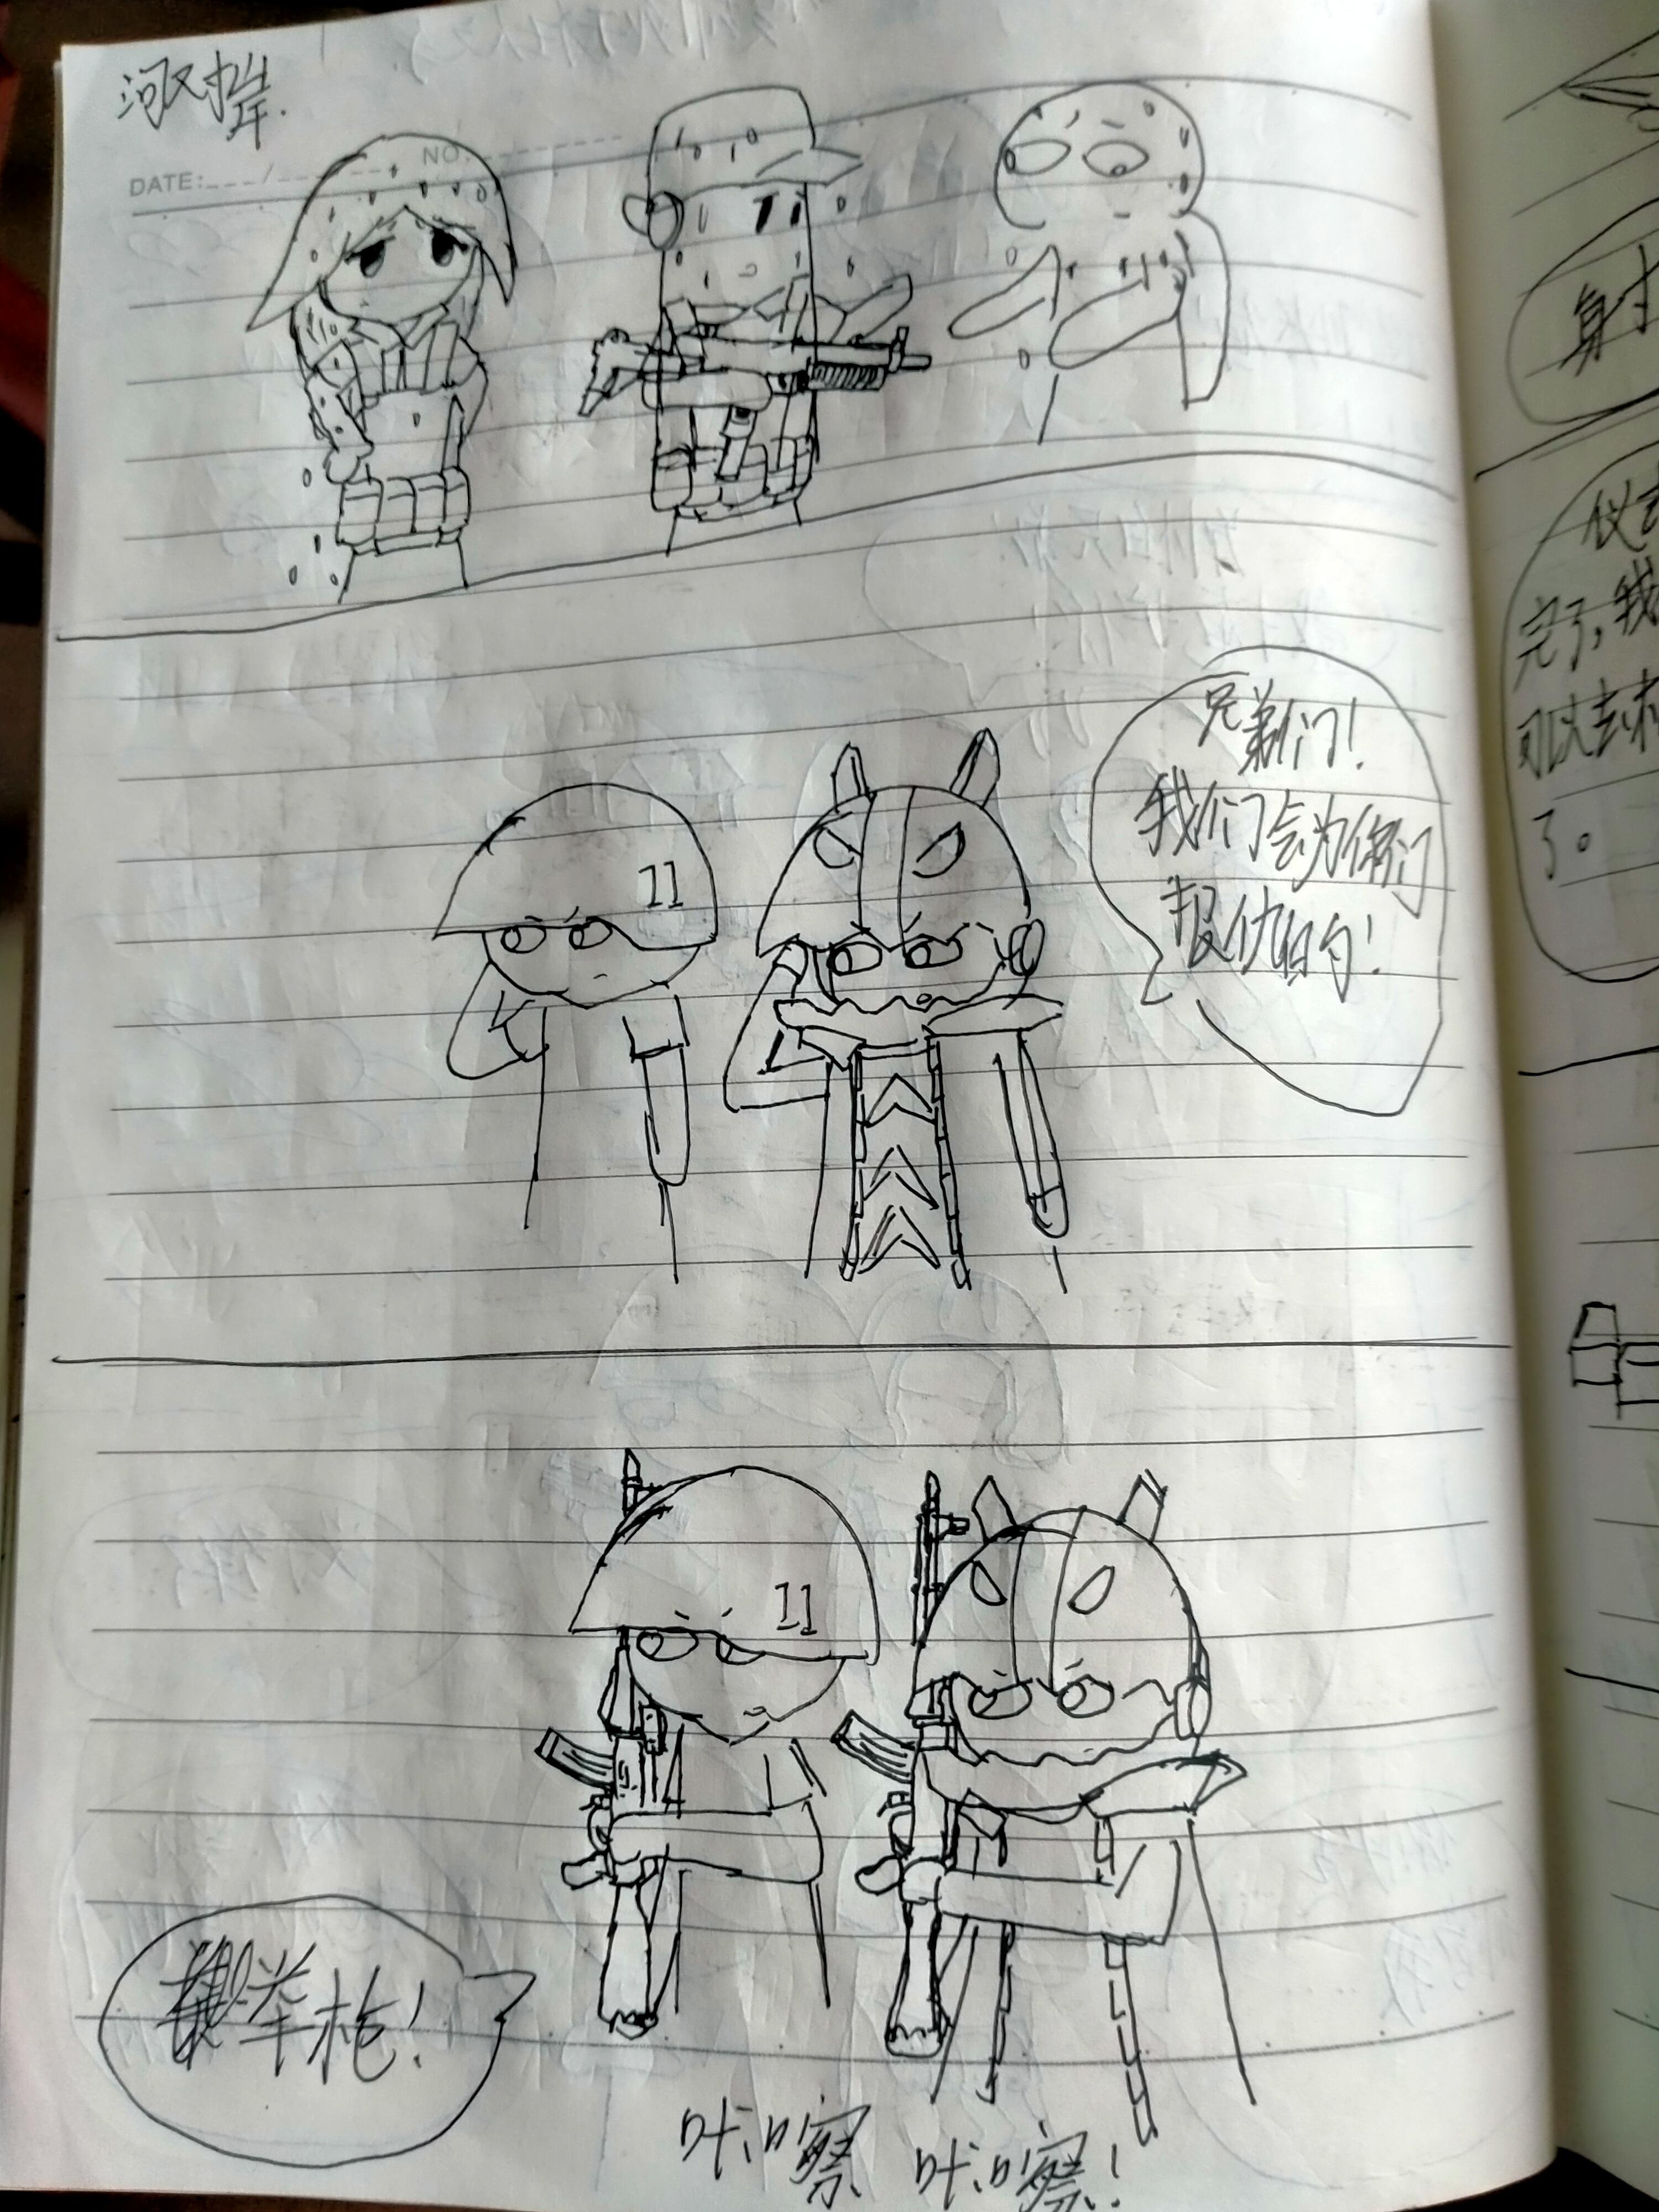 河对岸.
DATE: / NO.
兄弟们!
我们会为你们
报仇的!
11
11
举枪!
咔嚓 咔嚓!
射
仪
完了,我
可以去
了。